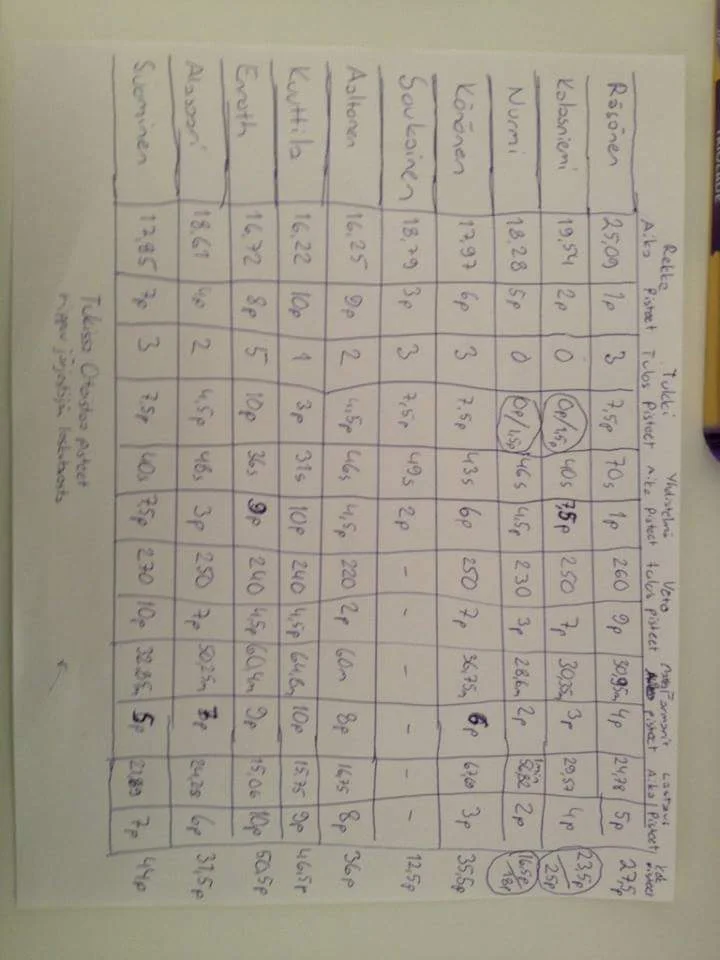 Rekka Tukki Yhdistelmä Veto Farmarit
Aika Pisteet Tulos Pisteet Aika Pisteet tulos pisteet pisteet Aika Pisteet pisteet
Räsänen 25,09 1p 3 7,5p 70s 1p 260 9p 30,95m 4p 24,78 5p 27,5p
Kolasniemi 19,54 2p 0 0p/1,5p 40s 7,5p 250 7p 30,35m 3p 29,57 4p 23,5p 25p
Nurmi 18,28 5p 0 0p/1,5p 46s 4,5p 230 3p 28,6m 2p 1min 2p 16,5p 18p
Könönen 17,97 6p 3 7,5p 43s 6p 250 7p 36,75m 6p 3p 35,5p
Soukainen 18,79 3p 3 7,5p 49s 2p - - - - - - 12,5p
Aaltonen 16,25 9p 2 4,5p 46s 4,5p 220 2p 60m 8p 16,75 8p 36p
Kuuttila 16,22 10p 1 3p 31s 10p 240 4,5p 64,8m 10p 15,75 9p 46,5p
Enroth 16,72 8p 5 10p 36s 9p 240 4,5p 60,4m 9p 15,06 10p 50,5p
Alasaari 18,61 4p 2 4,5p 48s 3p 250 7p 50,25m 7p 24,28 6p 31,5p
Suominen 17,85 7p 3 7,5p 40s 7,5p 270 10p 32,85m 5p 21,89 7p 44p
Tukissa pisteet
järjestäjän laskutavasta